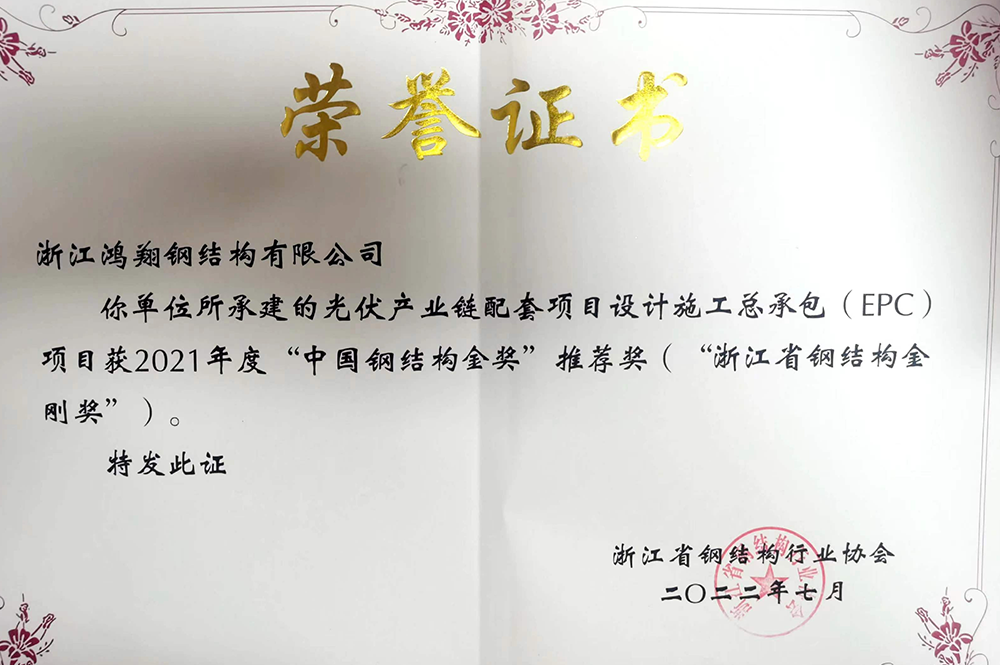 荣誉证书
浙江鸿翔钢结构有限公司
你单位所承建的光伏产业链配套项目设计施工总承包（EPC）
项目获2021年度“中国钢结构金奖”推荐奖（“浙江省钢结构金
刚奖”）。
特发此证
浙江省钢结构行业协会
二〇二二年七月
浙江省钢结构行业协会